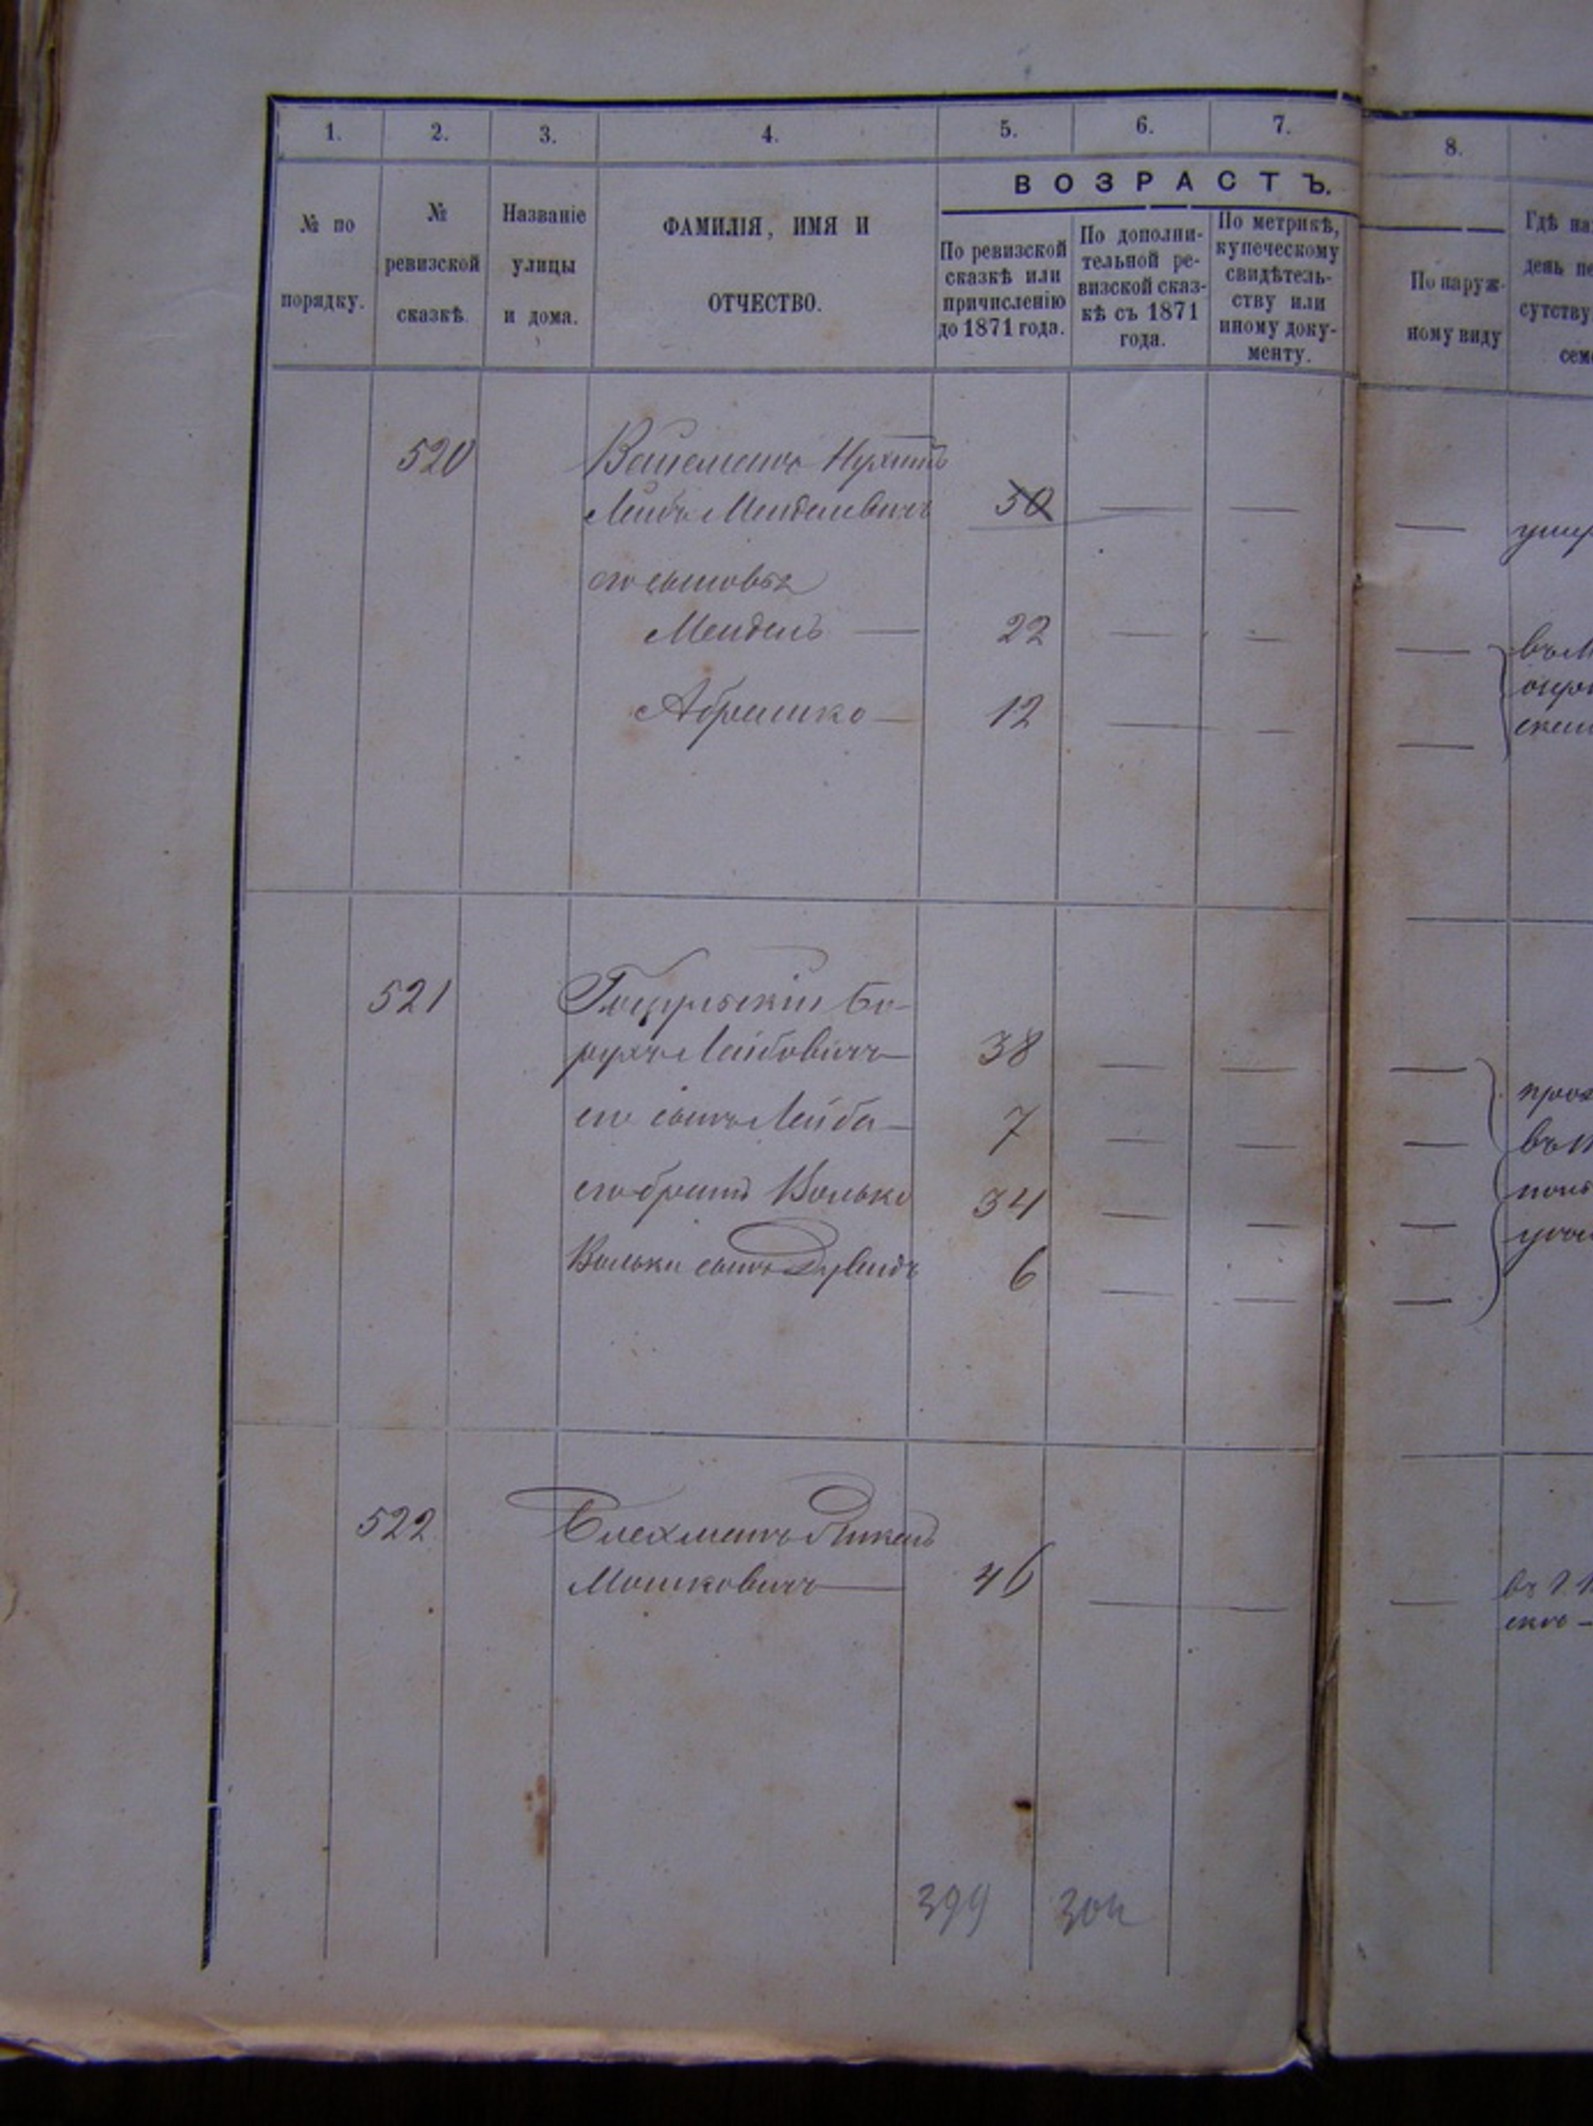 1. 2. 3. 4. 5. 6. 7. 8.
ВОЗРАСТЪ.
№ по порядку.
№ ревизской сказкѣ.
Названіе улицы и дома.
ФАМИЛІЯ, ИМЯ И ОТЧЕСТВО.
По ревизской сказкѣ или причисленію до 1871 года.
По дополнительной ревизской сказкѣ съ 1871 года.
По метрикѣ, купеческому свидѣтельству или иному документу.
По наружному виду
Гдѣ на
день пе
сутству
сем
520
Лейбъ Менделевичъ 50
его сыновья
Мендель — 22
Абрамко — 12
521 Бо-
рухъ Лейбовичъ — 38
его сынъ Лейба — 7
его братъ Волько 34
Вольки сынъ Дувидъ 6
522 Блехманъ Янкель
Мошковичъ — 46
399